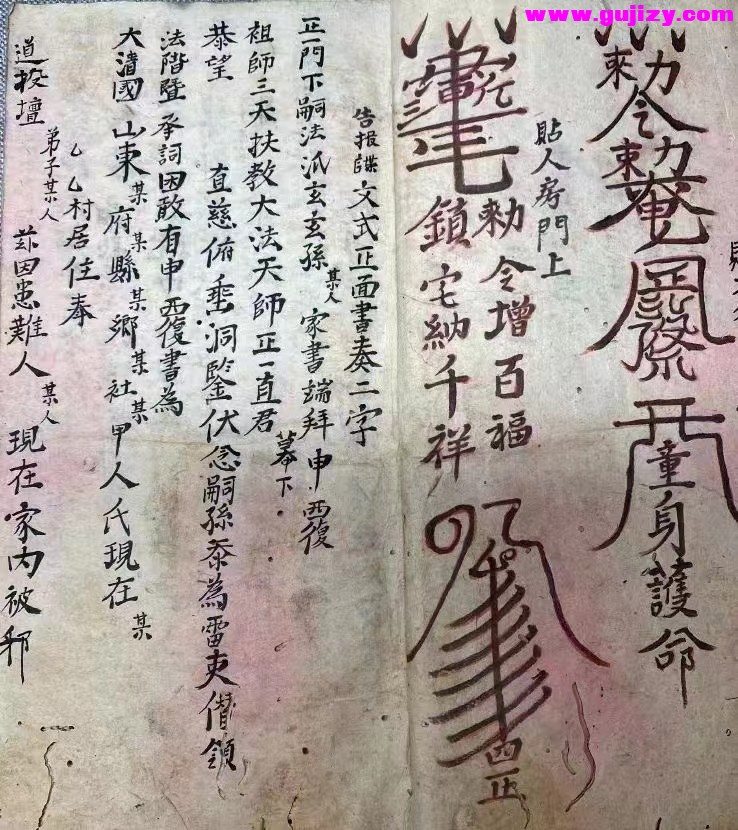 www.gujizy.com
勅令
童身護命
貼人房門上
勅令增百福
鎮宅納千祥
四正
告报牒文式正面書奏二字
正一門下嗣法派玄玄孫某人家書端拜申覆
祖師三天扶教大法天師正一直君幕下
恭望 直慈俯垂洞鑒伏念嗣孫忝為雷吏僭領
法階暨承詞因敢有申覆書為
大清國山東某府某縣某鄉某社某甲人氏現在某
乙乙村居住奉
道投壇弟子某人茲因患難人某人現在家内被邪